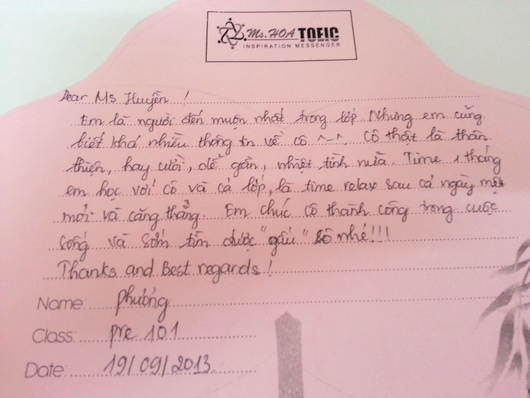 Ms. HOA TOEIC
INSPIRATION MESSENGER
Dear Ms Huyền !
Em là người đến muộn nhất trong lớp. Nhưng em cũng
biết khá nhiều thông tin về cô ^~^ Cô thật là thân
thiện, hay cười, dễ gần, nhiệt tình nữa. Time 1 tháng
em học với cô và cả lớp, là time relax sau cả ngày mệt
mỏi và căng thẳng. Em chúc cô thành công trong cuộc
sống và sớm tìm được "gấu" cô nhé!!!
Thanks and Best regards!
Name: Phương
Class: pre 101
Date: 19/09/2013